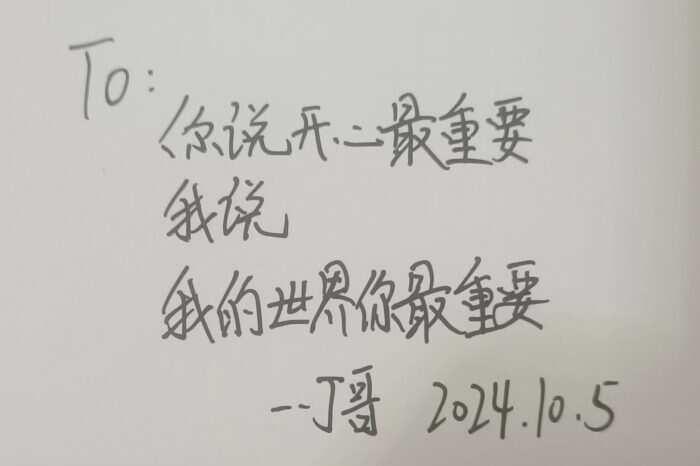 To:
你说开心最重要
我说
我的世界你最重要
--丁哥 2024.10.5